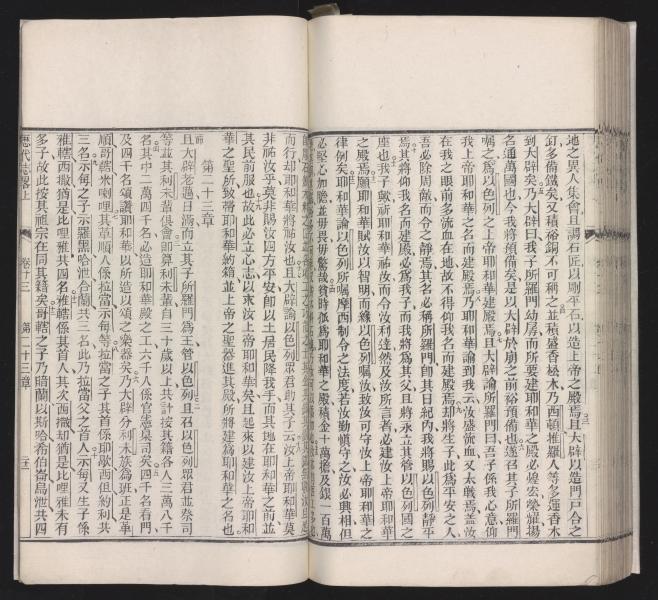 地之異人集會且謂石匠以剛平石以造上帝之殿焉且大辟以造門戶合之
釘多備鐵矣又積裕銅不可稱之並積盛香木乃西頓推羅人等多運香木
到大辟矣乃大辟曰我子所羅門幼房而所要建耶和華之殿必煌宏榮耀揚
名通萬國也今我將預備矣是以大辟於崩之前裕預備也遂召其子所羅門
囑之爲以色列之上帝耶和華建殿焉且大辟論所羅門曰吾子係我心意仰
我上帝耶和華之名而建殿焉乃耶和華諭到我云汝盛流血又太戰焉蓋汝
在我之眼前多流血在地故不得仰我名而建殿焉却將生子此爲平安之人
吾必除周敵而令之靜焉其名必稱所羅門即其日紀內我將賜以色列靜平
焉其將仰我名而建殿必爲我子而我將爲其父且將永立其管以色列國之
座也我子歟祈耶和華祐汝而令汝利達然及汝所言者必建汝上帝耶和華
之殿焉願耶和華賦汝以智明而緣以色列囑汝致汝可守汝上帝耶和華之
律例矣耶和華諭以色列所囑摩西制令之法度若汝勤愼守之汝必興相但
必堅心如膽並毋畏毋驚哉時孤爲耶和華之殿積金十萬擔及銀一百萬
而行却耶和華將祐汝也且大辟諭以色列眾君助其子云汝上帝耶和華莫
非祐汝乎莫非賜汝四方平安卽以土居民降我手而其地在耶和華之前並
其民前服也故此必立心志以求汝上帝耶和華矣且起來以建汝上帝耶和
華之聖所致帶耶和華納箱並上帝之聖器進其殿所將建爲耶和華之名也
第二十三章
且大辟老邁日滿而立其子所羅門爲王管以色列且召以色列眾君並祭司
等並其利未輩俱會卽算利未輩自三十歲以上共計按其籍各人三萬八千
名其中二萬四千名必造耶和華殿之工六千人係官憲臬司矣四千名看門
及四千名頌讚耶和華以所造以頌之樂器矣乃大辟分利未族爲班正是革
順哥轄米喇哩其革順人係拉當示每等拉當之子其首係耶歇西但約利共
三名示每之子示羅黑哈泄合蘭共三名此乃拉當父之首人示每又生子係
雅轄西撒猶是比哩雅共四名雅轄係其首人其次西撒却猶是比哩雅未有
多子故此按其祖宗在同其籍矣哥轄之子乃暗蘭以斯哈希伯崙烏泄共四
歷代誌畧上
卷十三
第二十三章